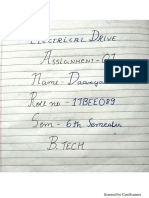 ELECTRICAL DRIVE
ASSIGNMENT-01
Roll no - 17BEE089
Sem - 6th Semester
B.TECH
Scanned by CamScanner